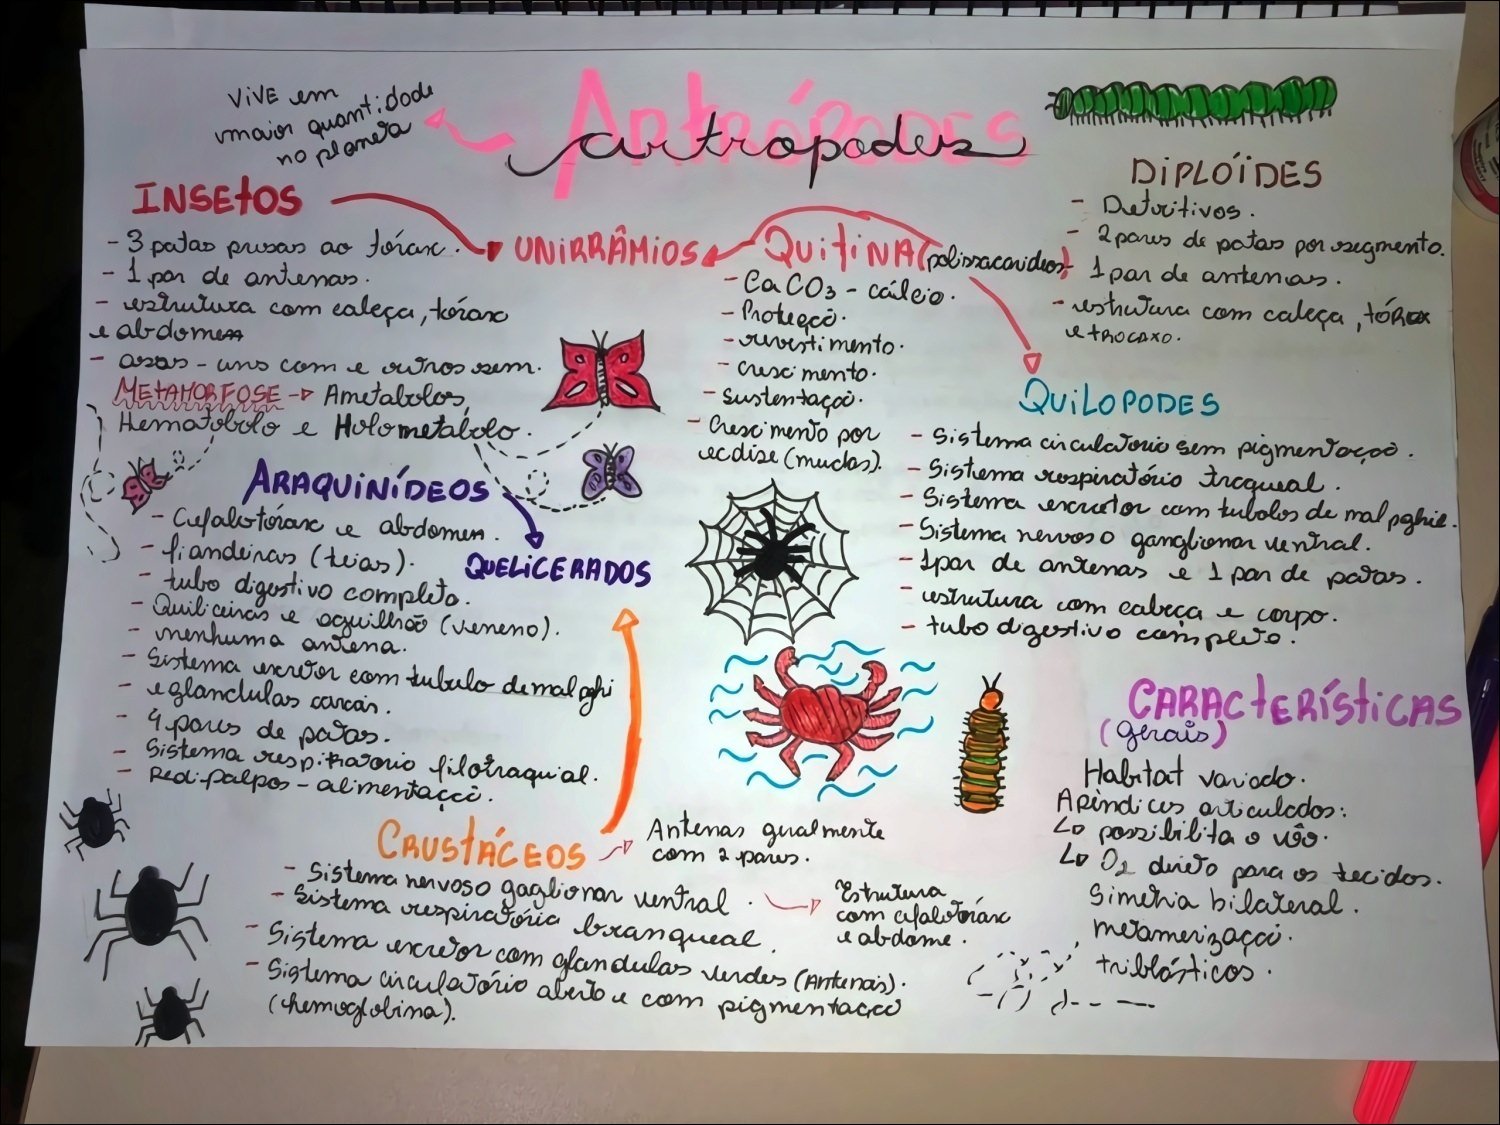 VIVE em
maior quantidade
no planeta
ARTRÓPODES
artropodes
INSEtOS
- 3 patas presas ao tórax.
- 1 par de antenas.
- estrutura com cabeça, tórax
e abdomem
- asas - uns com e outros sem.
METAMORFOSE -> Ametabolos,
Hematobolo e Holometabolo.
UNIRRÂMIOS
QUITINA (polissacarideos)
- CaCO3 - cálcio.
- Proteção.
- revestimento.
- crescimento.
- Sustentação.
- Crescimento por
ecdise (mudas).
DIPLÓIDES
- Detritivos.
- 2 pares de patas por segmento.
- 1 par de antenas.
- estrutura com cabeça, tórax
e trocaxo.
QUILOPODES
- Sistema circulatorio sem pigmentação.
- Sistema respiratório traqueal.
- Sistema excretor com tubolos de malpghie.
- Sistema nervoso ganglionar ventral.
- 1 par de antenas e 1 par de patas.
- estrutura com cabeça e corpo.
- tubo digestivo completo.
ARAQUINÍDEOS
- Cefalotórax e abdomem.
- fiandeiras (teias).
- tubo digestivo completo.
- Quiliceiras e aguilhão (veneno).
- nenhuma antena.
- Sistema excretor com tubulo de malpghi
- e glandulas coxais.
- 4 pares de patas.
- Sistema respiratorio filotraquial.
- Pedipalpos - alimentação.
QUELICERADOS
CRUSTÁCEOS
Antenas geralmente
com 2 pares.
- Sistema nervoso gaglionar ventral.
- Sistema respiratória branqueal.
- Sistema excretor com glandulas verdes (Antenais).
- Sistema circulatório aberto e com pigmentação
(hemoglobina).
Estrutura
com cefalotórax
e abdome.
CARACTERÍSTICAS
(gerais)
Habitat variado.
Apêndices articulados:
↳ possibilita o vôo.
↳ O2 direto para os tecidos.
Simetria bilateral.
metamerização.
triblásticos.